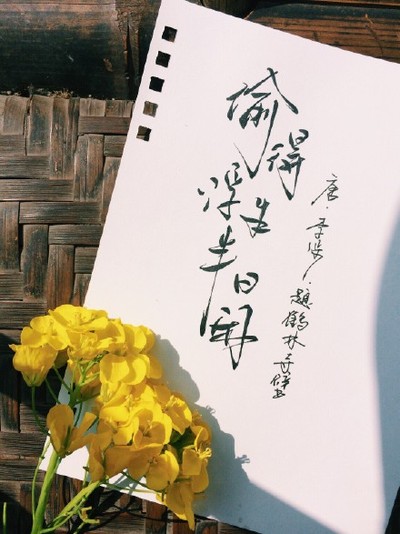 偷得浮生半日闲
唐·李涉·题鶴林寺壁